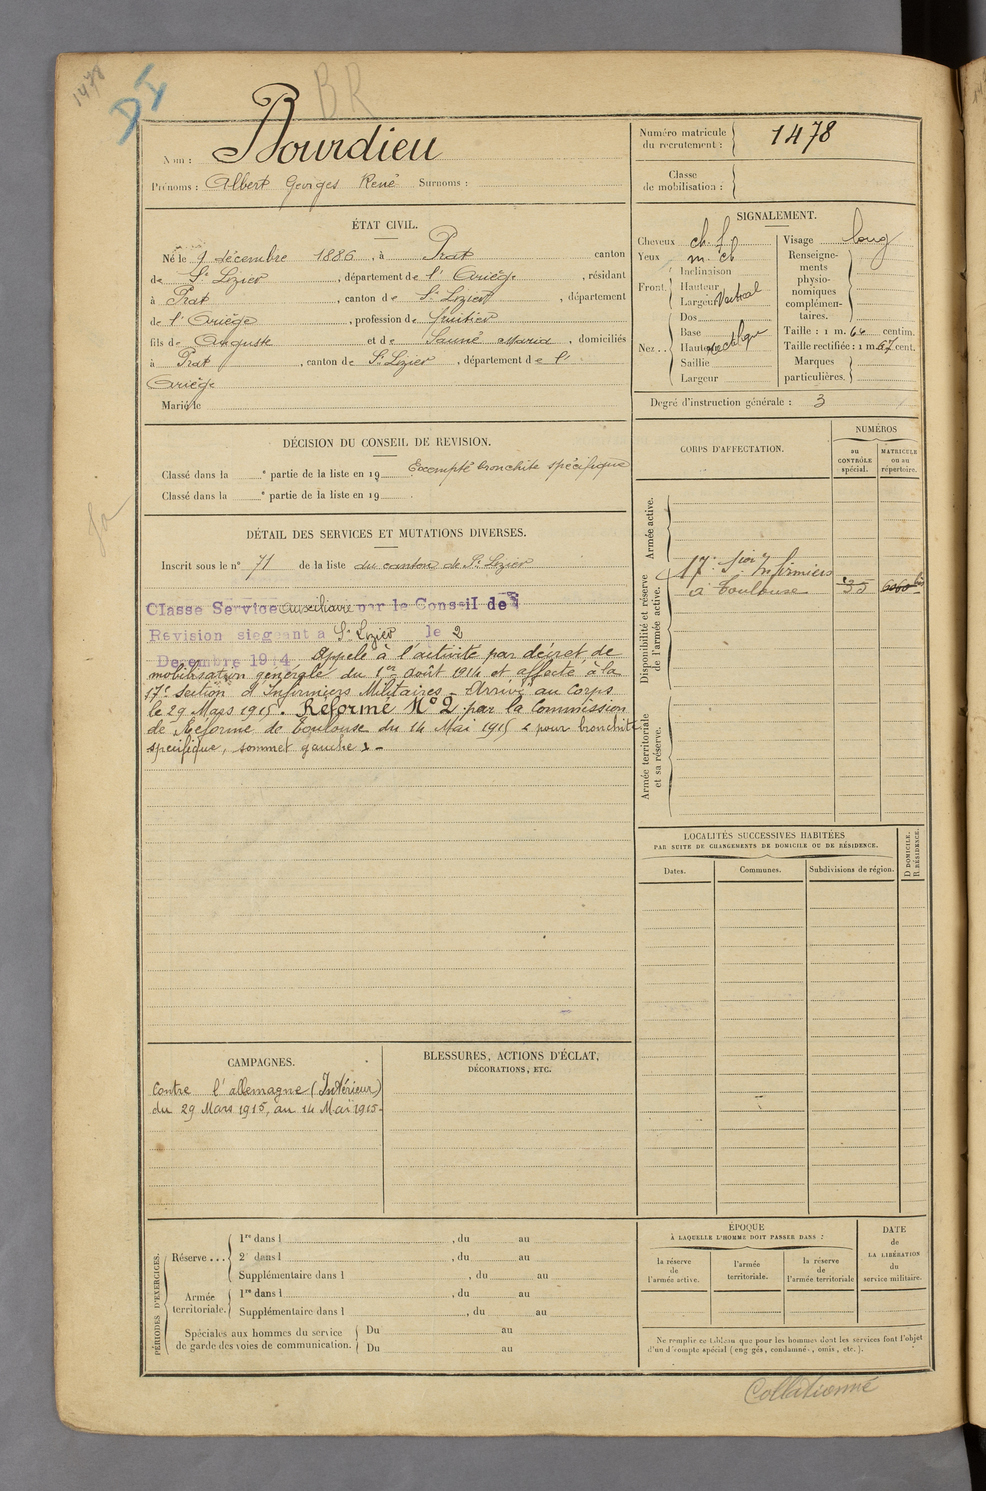 1478
BR
Nom : Bourdieu
Prénoms : Albert Georges René Surnoms :
Numéro matricule
du recrutement : 1478
Classe
de mobilisation :
ÉTAT CIVIL.
Né le 9 décembre 1886, à Prat canton
de St Lizier, département de l'Ariège, résidant
à Prat, canton de St Lizier, département
de l'Ariège, profession de fruitier
fils de Auguste et de Sauné Maria, domiciliés
à Prat, canton de St Lizier, département de l'
Ariège
Marié le
SIGNALEMENT.
Cheveux ch. f
Yeux m. ch
Front. Inclinaison
Hauteur
Largeur Vertical
Nez .. Dos
Base
Hauteur rectiligne
Saillie
Largeur
Visage long
Renseigne-
ments
physio-
nomiques
complémen-
taires.
Taille : 1 m. 64 centim.
Taille rectifiée : 1 m. 67 cent.
Marques
particulières.
Degré d'instruction générale : 3
DÉCISION DU CONSEIL DE REVISION.
Classé dans la e partie de la liste en 19 Exempté bronchite spécifique
Classé dans la e partie de la liste en 19
DÉTAIL DES SERVICES ET MUTATIONS DIVERSES.
Inscrit sous le n° 71 de la liste du canton de St Lizier
Classe Service auxiliaire par le Conseil de
Revision siegeant a St Lizier le 2
Decembre 1914. Appelé à l'activité par décret de
mobilisation générale du 1er août 1914 et affecté à la
17e Section d'Infirmiers Militaires - Arrivé au Corps
le 29 Mars 1915. Réformé N° 2 par la Commission
de Réforme de Toulouse du 14 Mai 1915 « pour bronchite
spécifique, sommet gauche » -
CORPS D'AFFECTATION.
NUMÉROS
au
CONTRÔLE
spécial.
MATRICULE
ou au
répertoire.
Armée active.
Disponibilité et réserve
de l'armée active.
17e Son Infirmiers
à Toulouse 6060 bis
Armée territoriale
et sa réserve.
LOCALITÉS SUCCESSIVES HABITÉES
PAR SUITE DE CHANGEMENTS DE DOMICILE OU DE RÉSIDENCE.
Dates. Communes. Subdivisions de région. D DOMICILE. R RÉSIDENCE.
CAMPAGNES.
Contre l'allemagne (Intérieur)
du 29 Mars 1915, au 14 Mai 1915-
BLESSURES, ACTIONS D'ÉCLAT,
DÉCORATIONS, ETC.
PÉRIODES D'EXERCICES.
Réserve ... 1re dans l , du au
2e dans l , du au
Supplémentaire dans l , du au
Armée
territoriale. 1re dans l , du au
Supplémentaire dans l , du au
Spéciales aux hommes du service
de garde des voies de communication. Du au
Du au
ÉPOQUE
À LAQUELLE L'HOMME DOIT PASSER DANS :
la réserve
de
l'armée active.
l'armée
territoriale.
la réserve
de
l'armée territoriale
DATE
de
LA LIBÉRATION
du
service militaire.
Ne remplir ce tableau que pour les hommes dont les services font l'objet
d'un décompte spécial (engagés, condamnés, omis, etc.).
Collationné